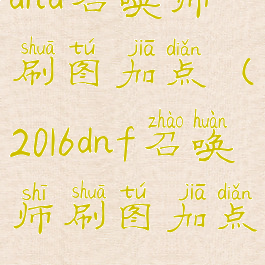 召唤师
shuā tú jiā diǎn
刷图加点（
zhào huàn
2016dnf召唤
shī shuā tú jiā diǎn
师刷图加点